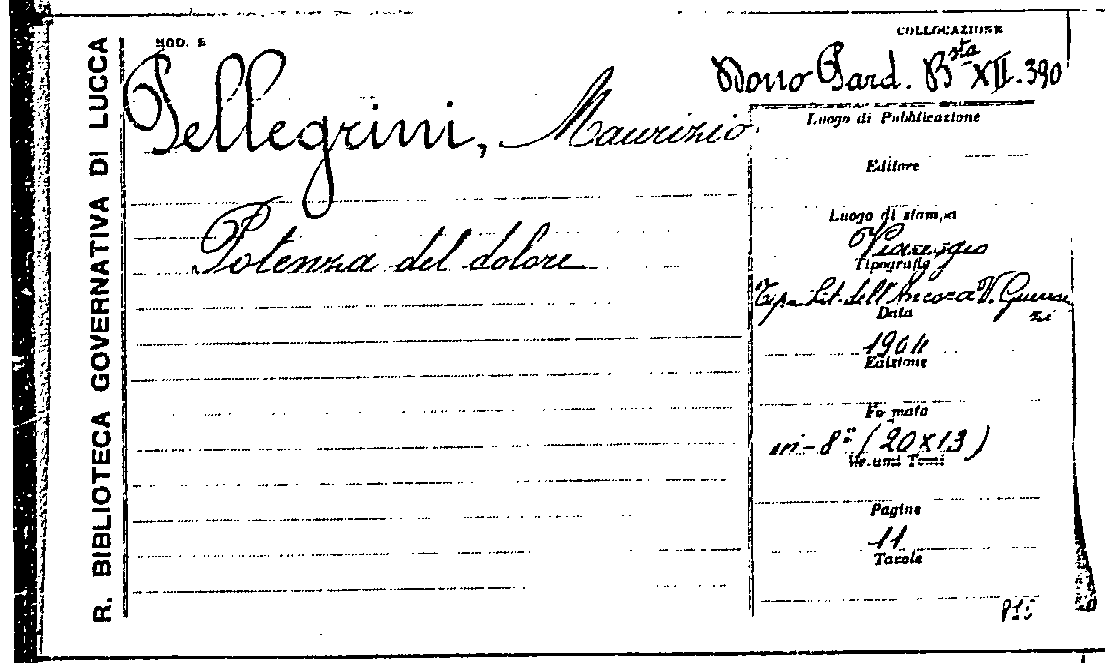 R. BIBLIOTECA GOVERNATIVA DI LUCCA
MOD. E
COLLOCAZIONE
Dono Pard. Bsta XII. 390
Pellegrini, Maurizio
Potenza del dolore
Luogo di Pubblicazione
Editore
Luogo di stampa
Viareggio
Tipografia
Tip. Lit. dell'Ancora V. Guerra
zi
Data
1904
Edizione
Fo mato
in-8º (20x13)
Tomi
Pagine
11
Tavole